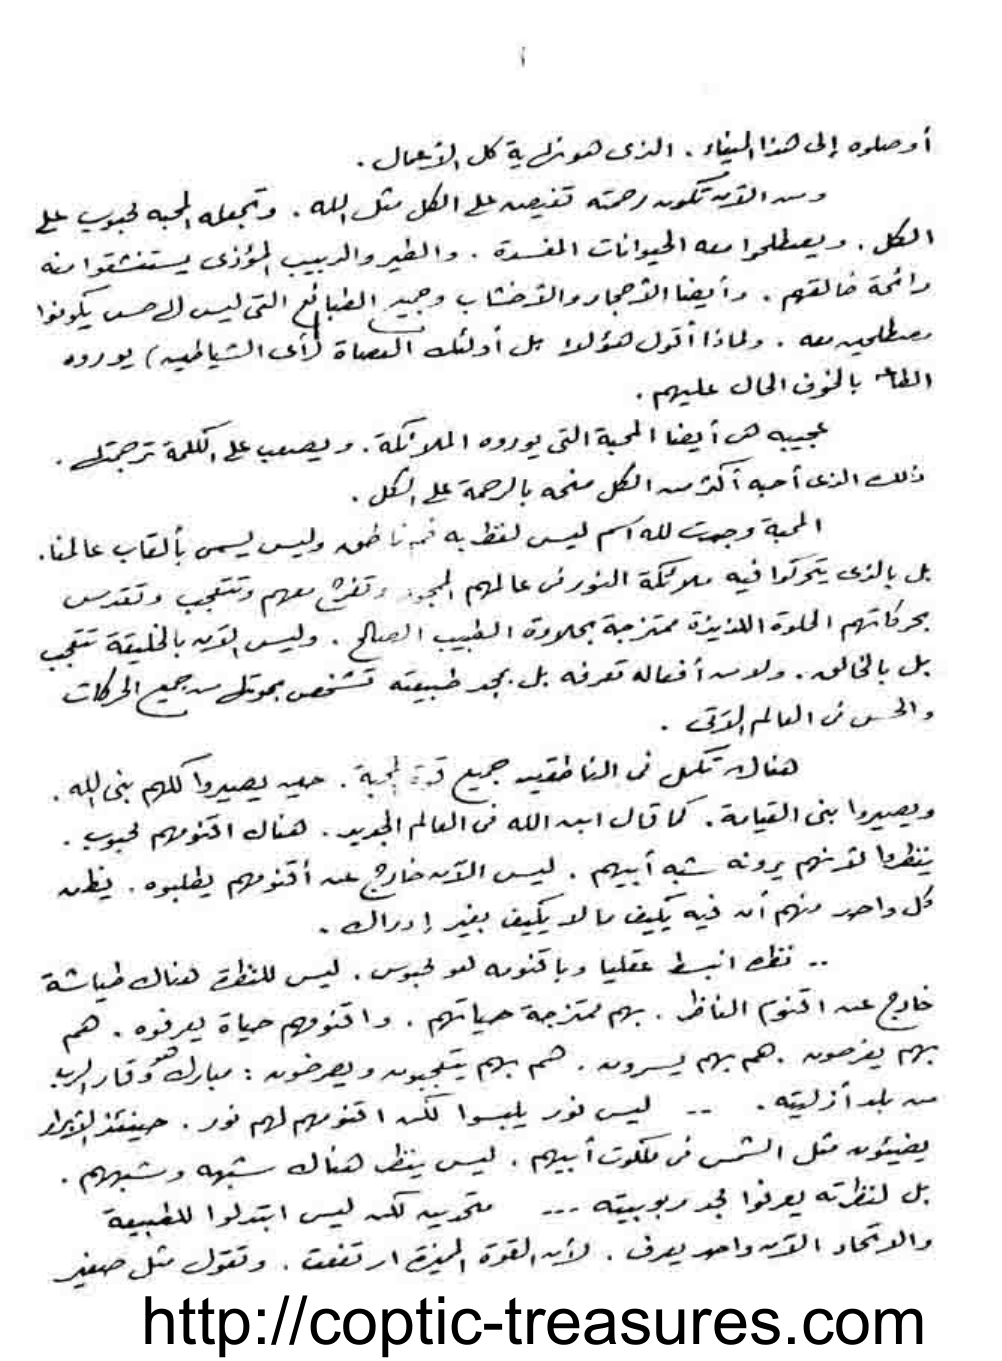 أوصلوه إلى هذا الميناء . الذى هو نهاية كل الأعمال .
ومن الآن تكون رحمته تفيض على الكل مثل الله . وتجعله المحبه محبوب على
الكل . ويصطلحوا معه الحيوانات المفسدة . والطير والدبيب المؤذى يستنشقوا منه
رائحة خالقهم . وأيضا الأحجار والأخشاب وجميع الطبائع التى ليس لها حس يكونوا
مصطلحين معه . ولماذا أقول هؤلاء بل أولئك العصاة (أى الشياطين) يوروه
الطاعة بالخوف الحال عليهم .
عجيبه هى أيضا المحبة التى يوروه الملائكة . ويصعب على الكلمة ترجمتها .
ذلك الذى أحبه أكثر من الكل منحه بالرحمة على الكل .
المحبة وجدت لله اسم ليس لفظ به فم ناطق وليس يسمى بألقاب عالمنا .
بل بالذى يتحركوا فيه ملائكة النور فى عالمهم وتفرح معهم وتتعجب وتقدس
بحركاتهم الحلوة اللذيذة ممتزجة بحلاوة الطبيب الصالح . وليس الآن بالخليقة تتعجب
بل بالخالق . ولا من أفعاله تعرفه بل بمجد طبيعته تشخص بموتها من جميع الحركات
والحس فى العالم الآتى .
هناك تكمل فى الناطقين جميع قوة المحبة . حين يصيروا كلهم بنى الله .
ويصيروا بنى القيامة . كما قال ابن الله فى العالم الجديد . هناك اقنومهم محبوب .
ينظروا لأنهم يرونه شبه أبيهم . ليس الآن خارج عن أقنومهم يطلبوه . يظن
كل واحد منهم أن فيه يكيف ما لا يكيف بغير إدراك .
.. نظره انبسط عقليا وباقنومه هو محبوس . ليس للنظرة هناك طياشة
خارج عن اقنوم الناظر . بهم ممتزجة حياتهم . واقنومهم حياة يعرفوه . هم
بهم يفرحون . هم بهم يسرون . هم بهم يتعجبون ويصرخون : مبارك هو وقار الرب
من بلد أزليته . .. ليس نور يلبسوا لكن اقنومهم لهم نور . حينئذ الأبرار
يضيئون مثل الشمس فى ملكوت أبيهم . ليس ينظر هناك شبهه وشبههم .
بل لنظرته يعرفوا مجد ربوبيته ... متحدين لكن ليس ابتدلوا للطبيعة
والاتحاد الآن واحد يعرف . لأن القوة المميزة ارتفعت . وتقول مثل صغير
http://coptic-treasures.com